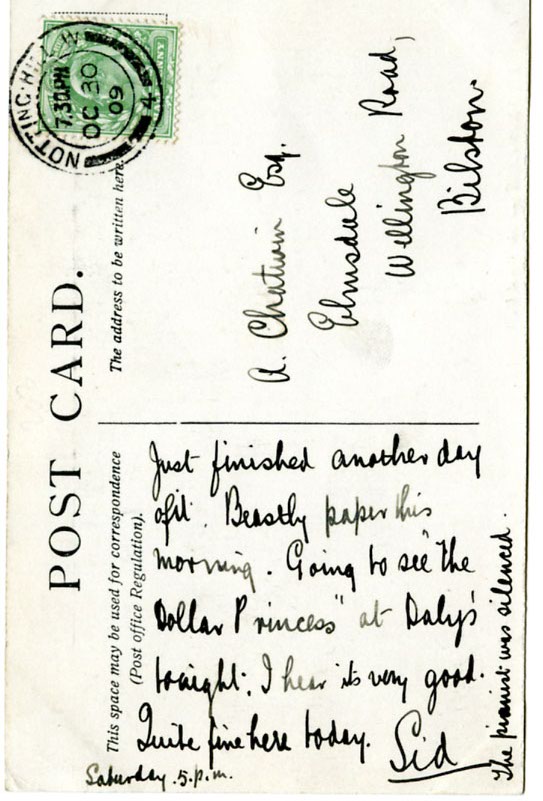 POST CARD.
This space may be used for correspondence
(Post office Regulation).
The address to be written here.
NOTTING-HILL
7.30 PM
OC 30
09
4
Just finished another day
of it. Beastly paper this
morning. Going to see "The
Dollar Princess" at Daly's
tonight; I hear its very good.
Quite fine here today. Sid
Saturday. 5. p.m.
The pianist was silenced.
A. Chatwin Esq.
Elmsdale
Wellington Road,
Bilston.